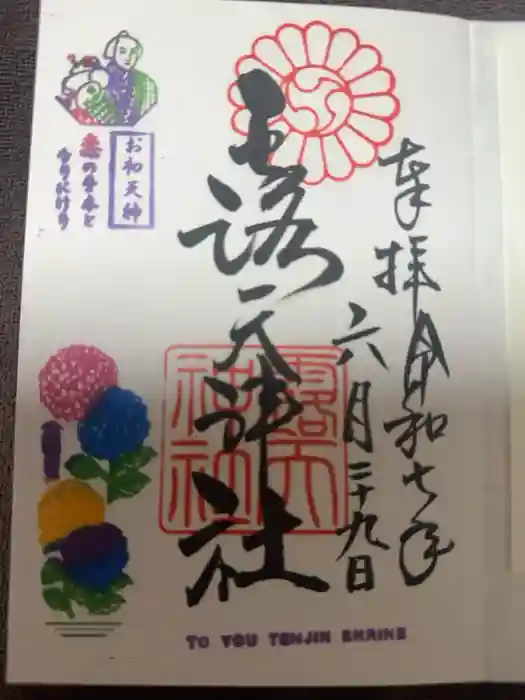 奉拝
令和七年
六月二十九日
露天神社
露天
神社
お初天神
恋の手本と
なりにけり
TO YOU TENJIN SHRINE